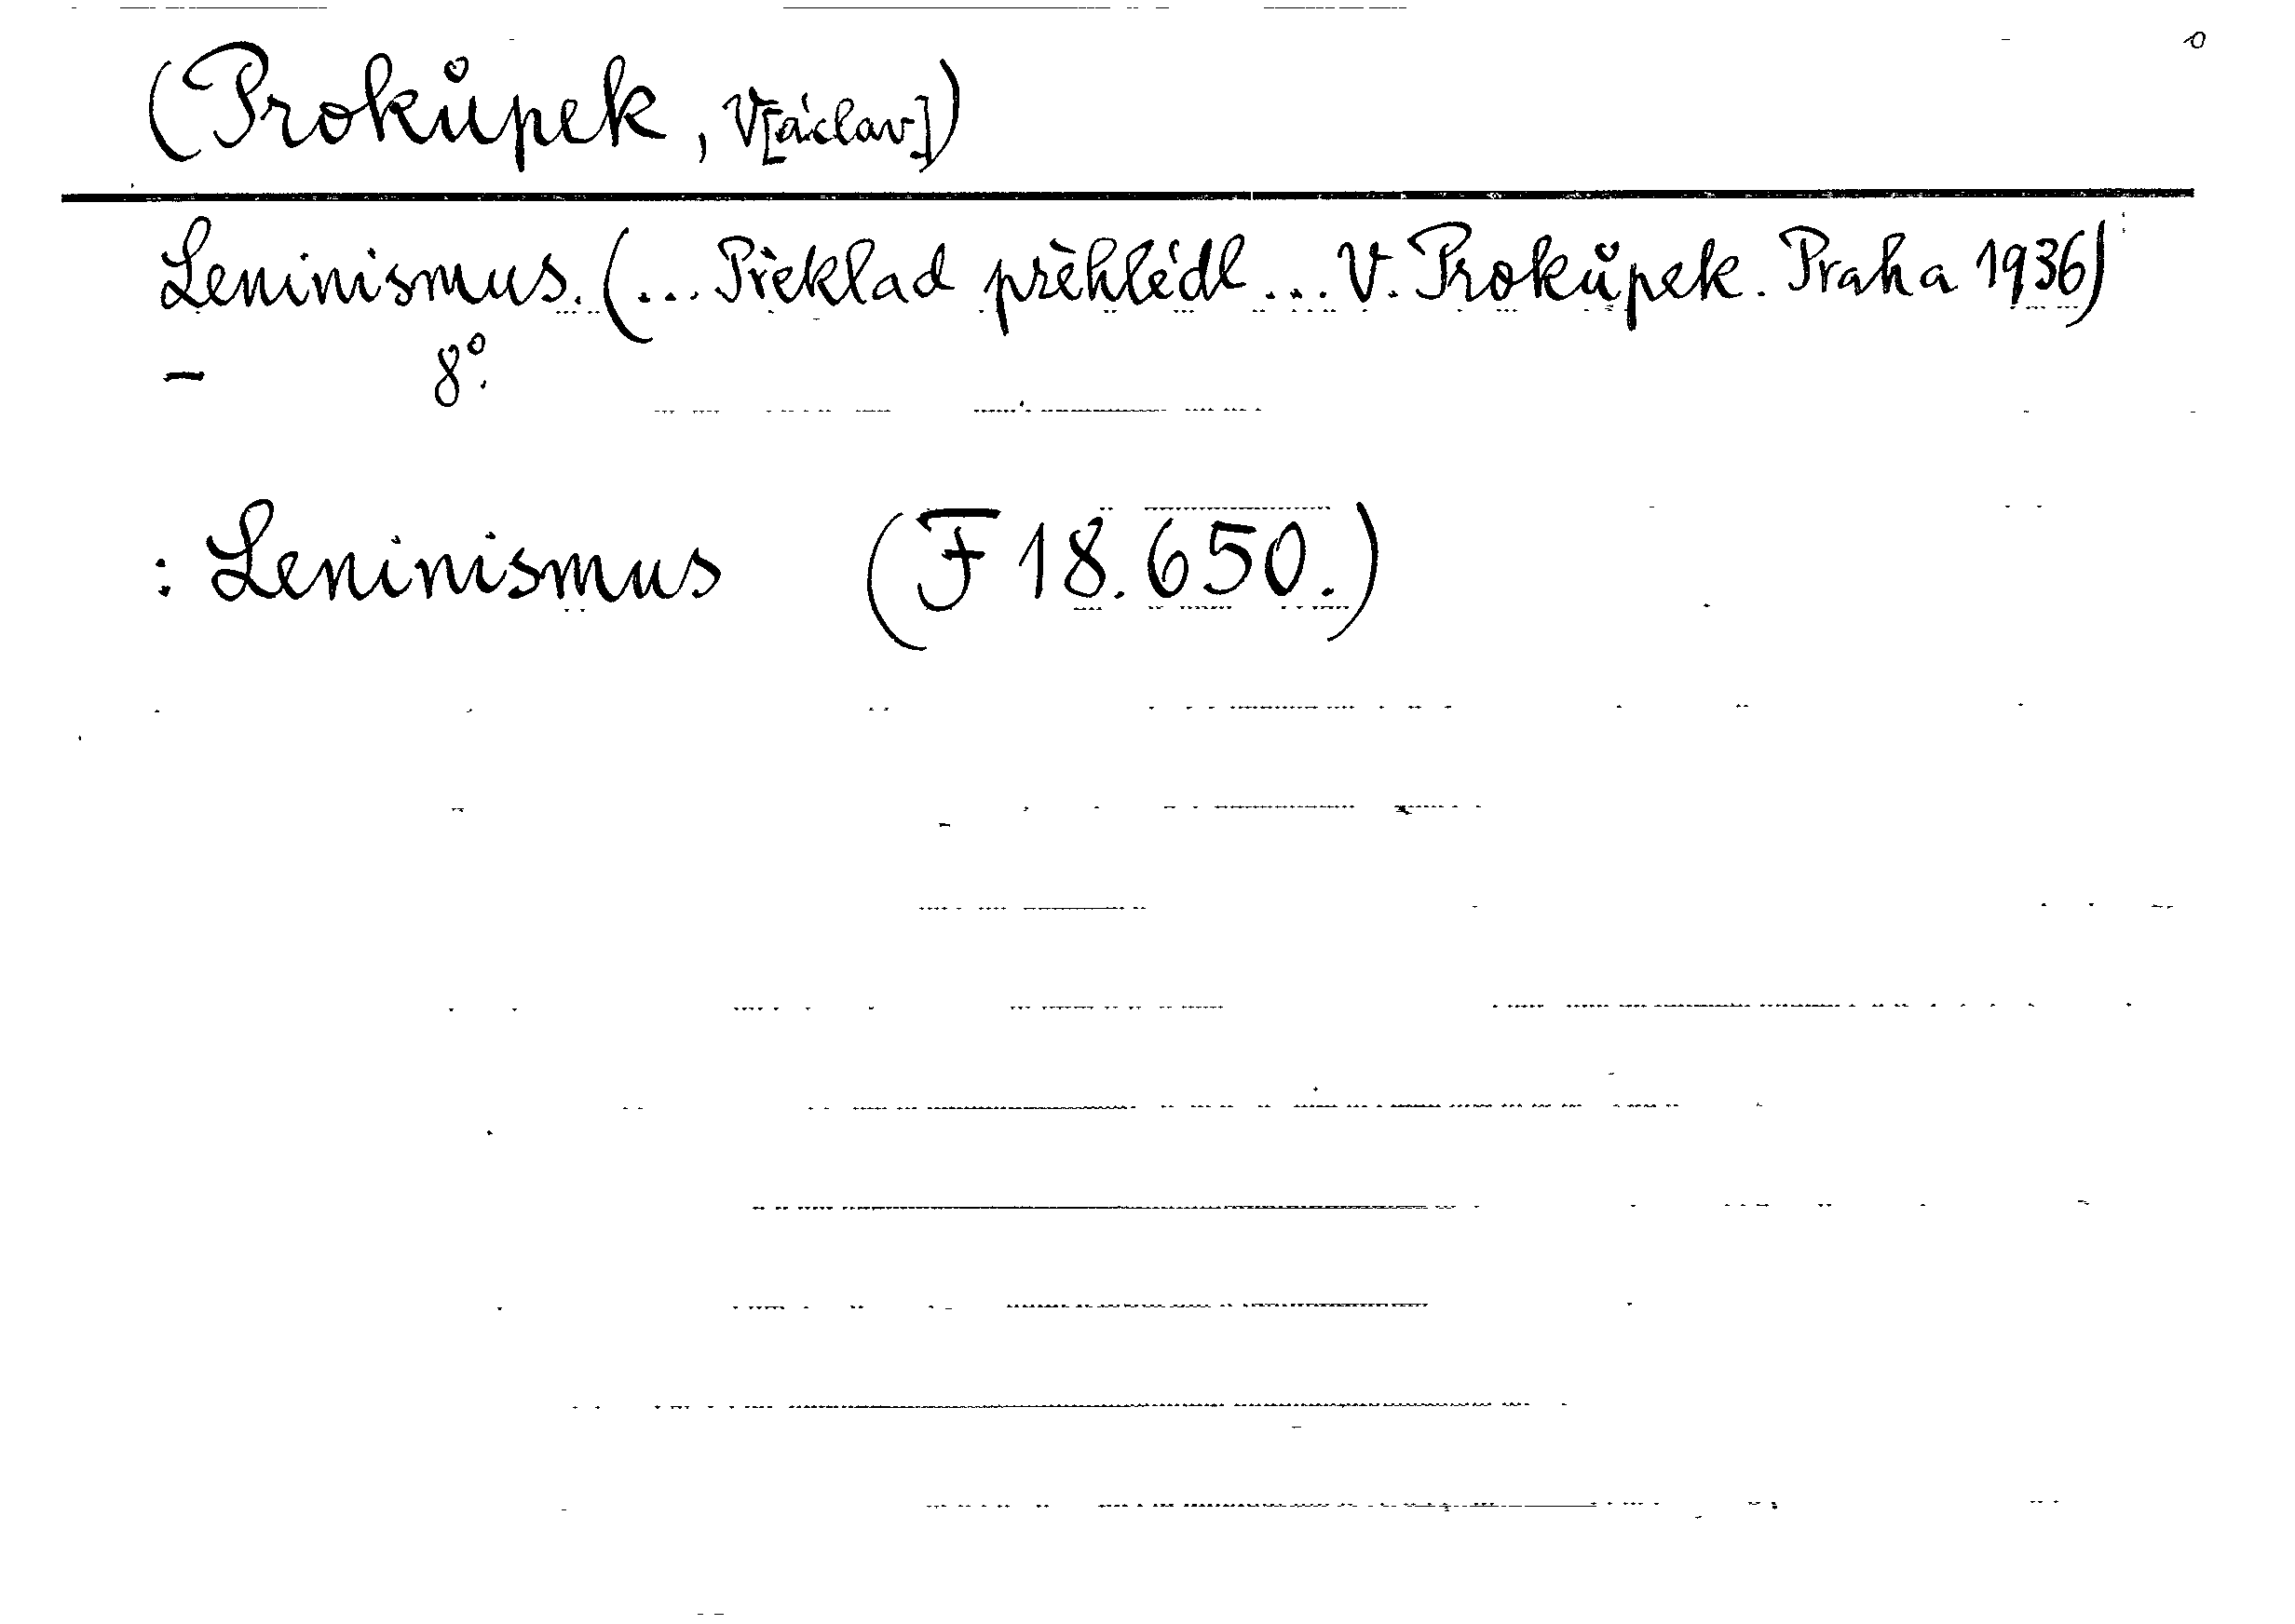 (Prokůpek, V[áclav])
Leninismus. (... Překlad přehlédl ... V. Prokůpek. Praha 1936)
— 8°.
: Leninismus (F 18.650.)